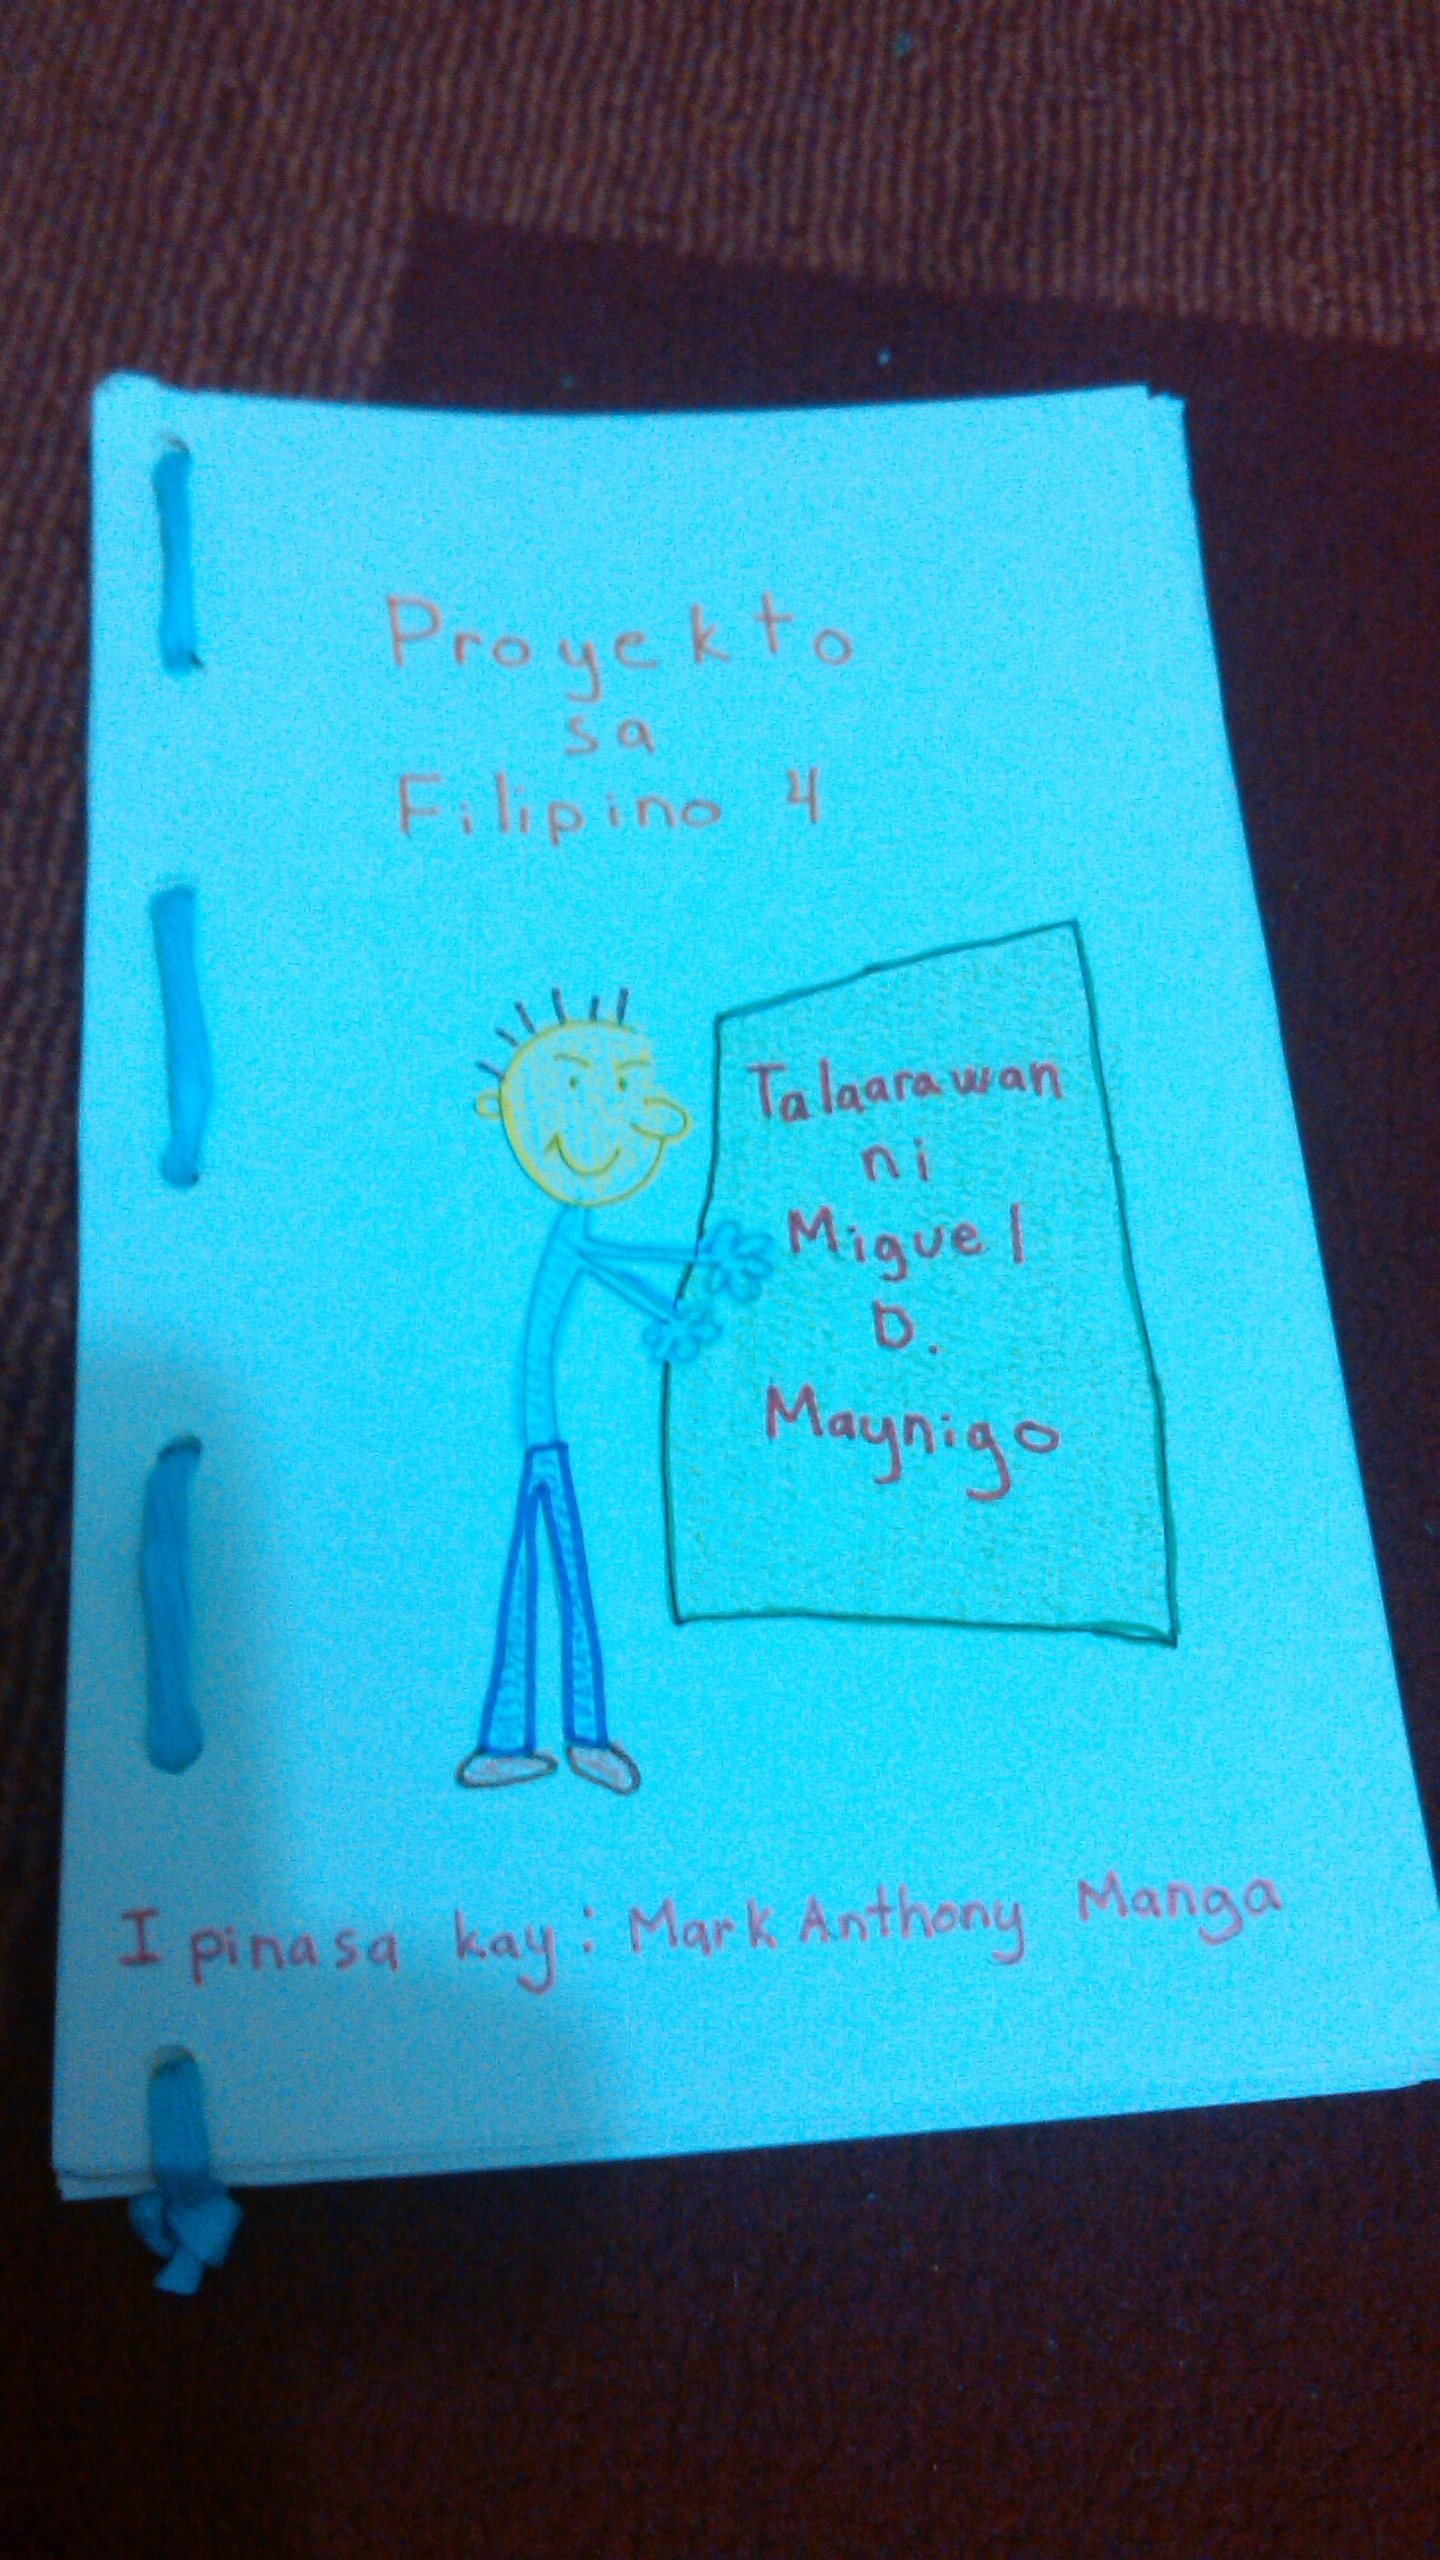 Proyekto
sa
Filipino 4
Talaarawan
ni
Miguel
D.
Maynigo
Ipinasa kay: Mark Anthony Manga